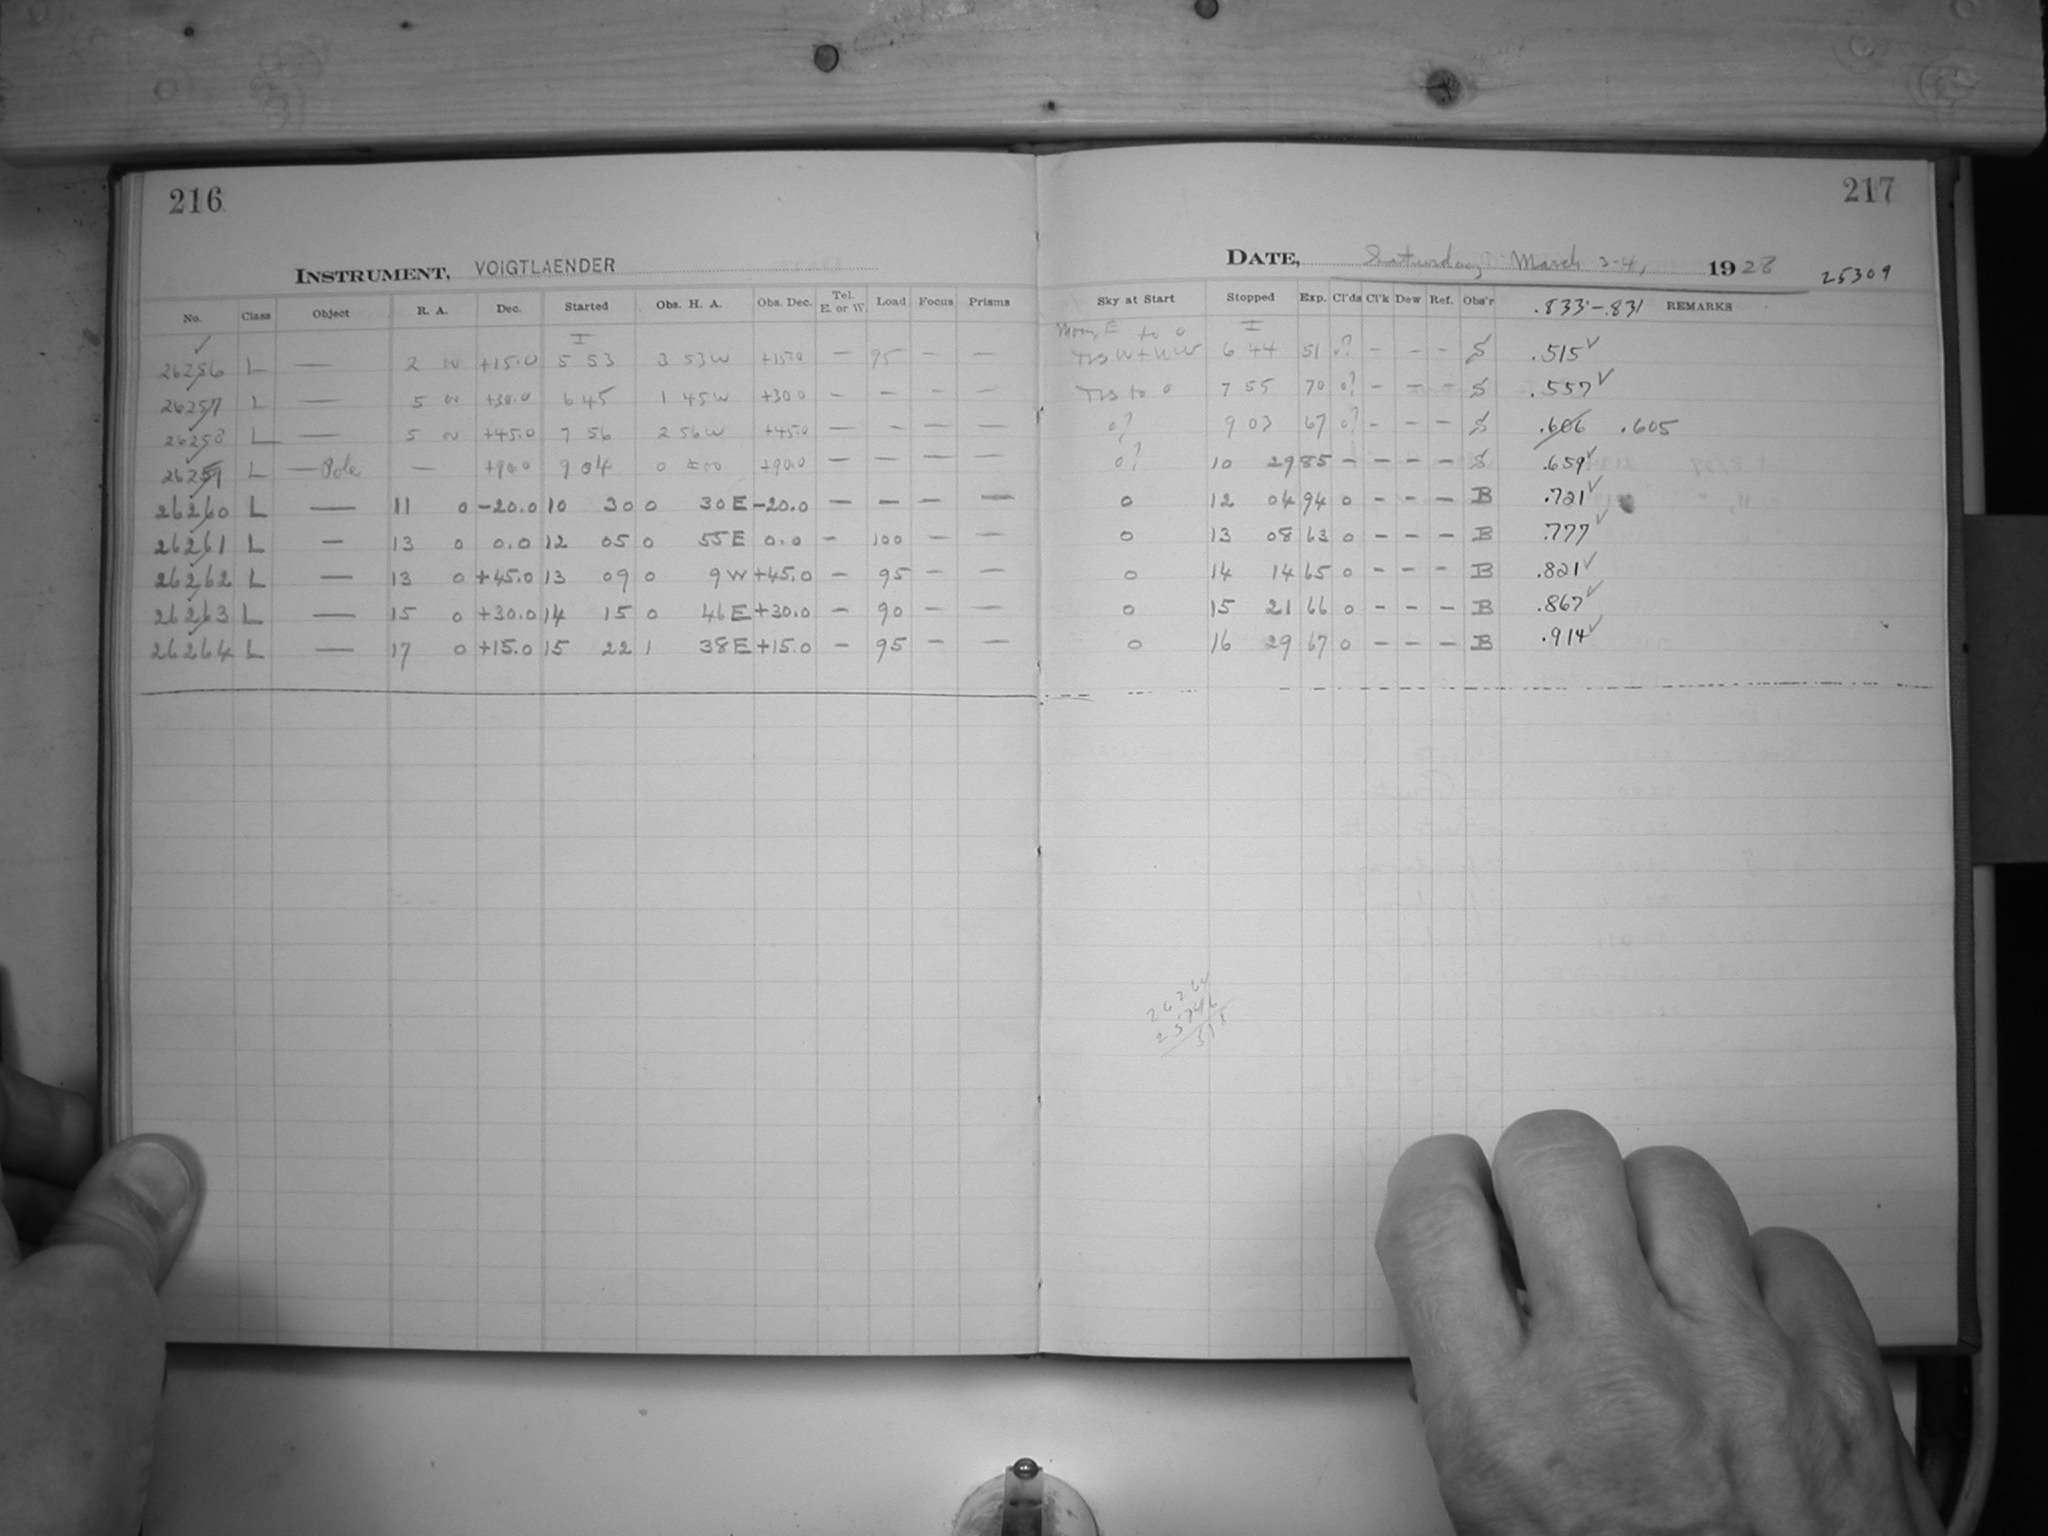 216
INSTRUMENT, VOIGTLAENDER
No. Class Object R. A. Dec. Started Obs. H. A. Obs. Dec. Tel. E. or W. Load Focus Prisms
I
26256 L — 2 +15.0 5 53 3 53W +15.0 — 95 — —
26257 L — 5 +30.0 6 45 1 45W +30.0 — — — —
26258 L — 5 +45.0 7 56 2 56W +45.0 — — — —
26259 L — Pole — +90.0 9 04 0 ±00 +90.0 — — — —
26260 L — 11 0 -20.0 10 30 0 30E -20.0 — — — —
26261 L — 13 0 0.0 12 05 0 55E 0.0 — 100 — —
26262 L — 13 0 +45.0 13 09 0 9W +45.0 — 95 — —
26263 L — 15 0 +30.0 14 15 0 46E +30.0 — 90 — —
26264 L — 17 0 +15.0 15 22 1 38E +15.0 — 95 — —
217
DATE, Saturday, March 3-4, 1928
25309
Sky at Start Stopped Exp. Cl'ds Cl'k Dew Ref. Obs'r .833-.831 REMARKS
E to 0 I
W + NW 6 44 51 0? — — — S .515 ✓
to 0 7 55 70 0? — — — S .557 ✓
0? 9 03 67 0? — — — S .606 .605
0? 10 29 85 — — — — S .659 ✓
0 12 04 94 0 — — — B .721 ✓
0 13 08 63 0 — — — B .777 ✓
0 14 14 65 0 — — — B .821 ✓
0 15 21 66 0 — — — B .867 ✓
0 16 29 67 0 — — — B .914 ✓
26264
25746
518